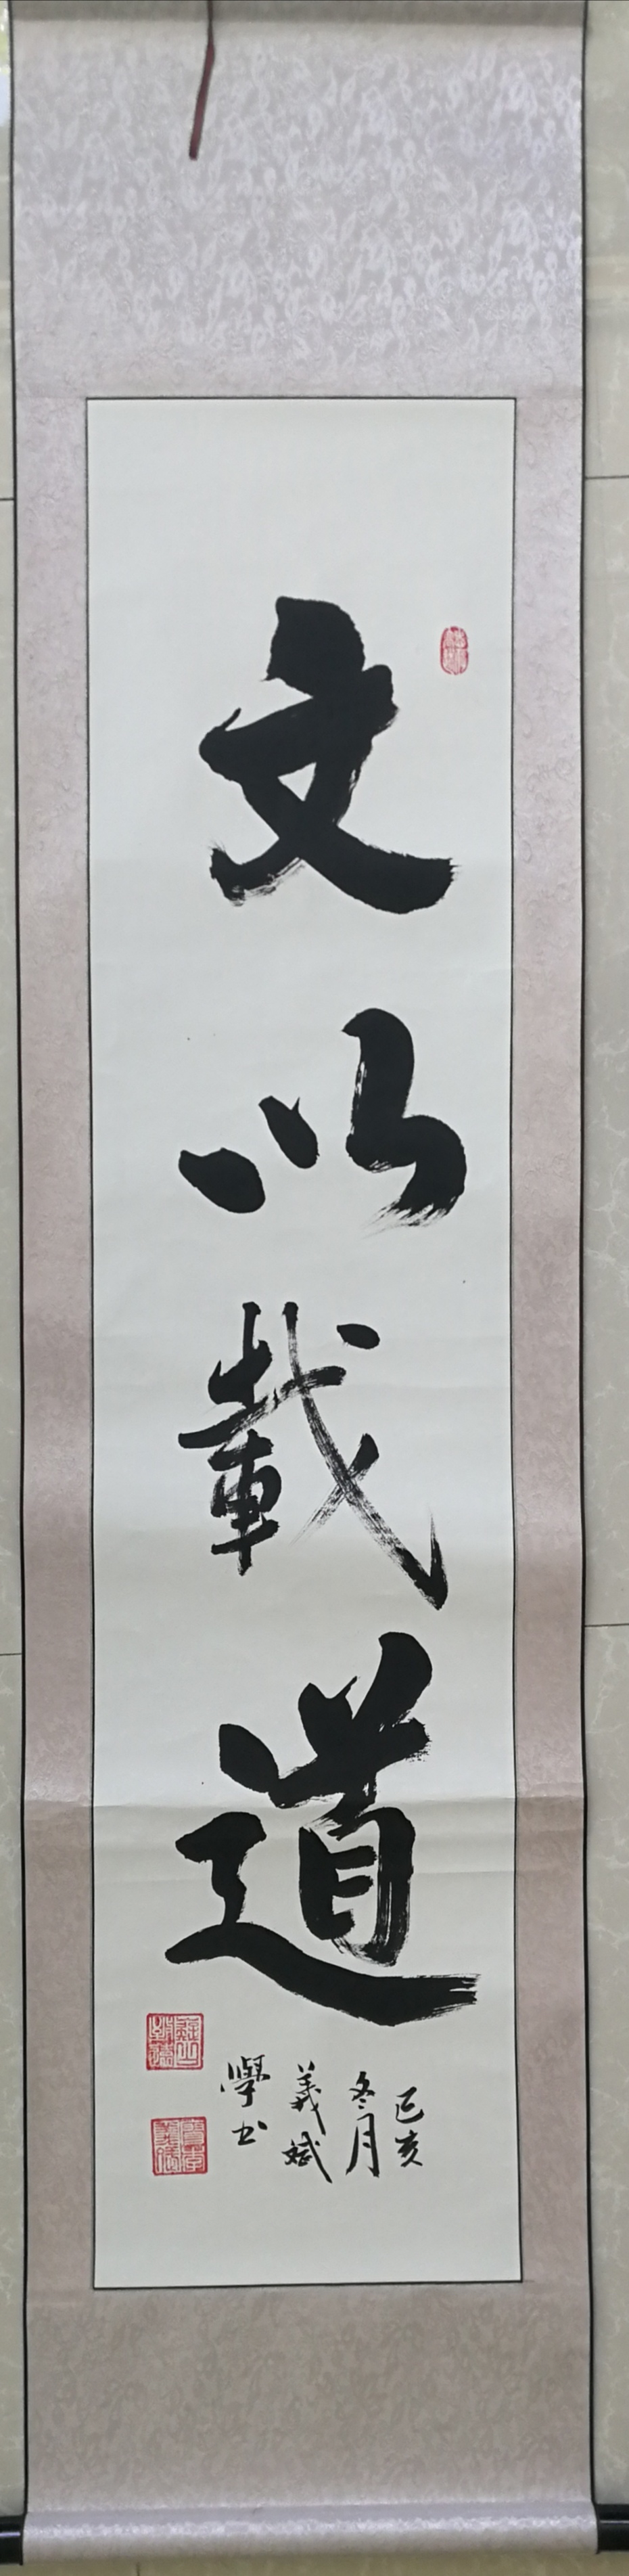 文以载道
己亥
冬月
義斌
學书